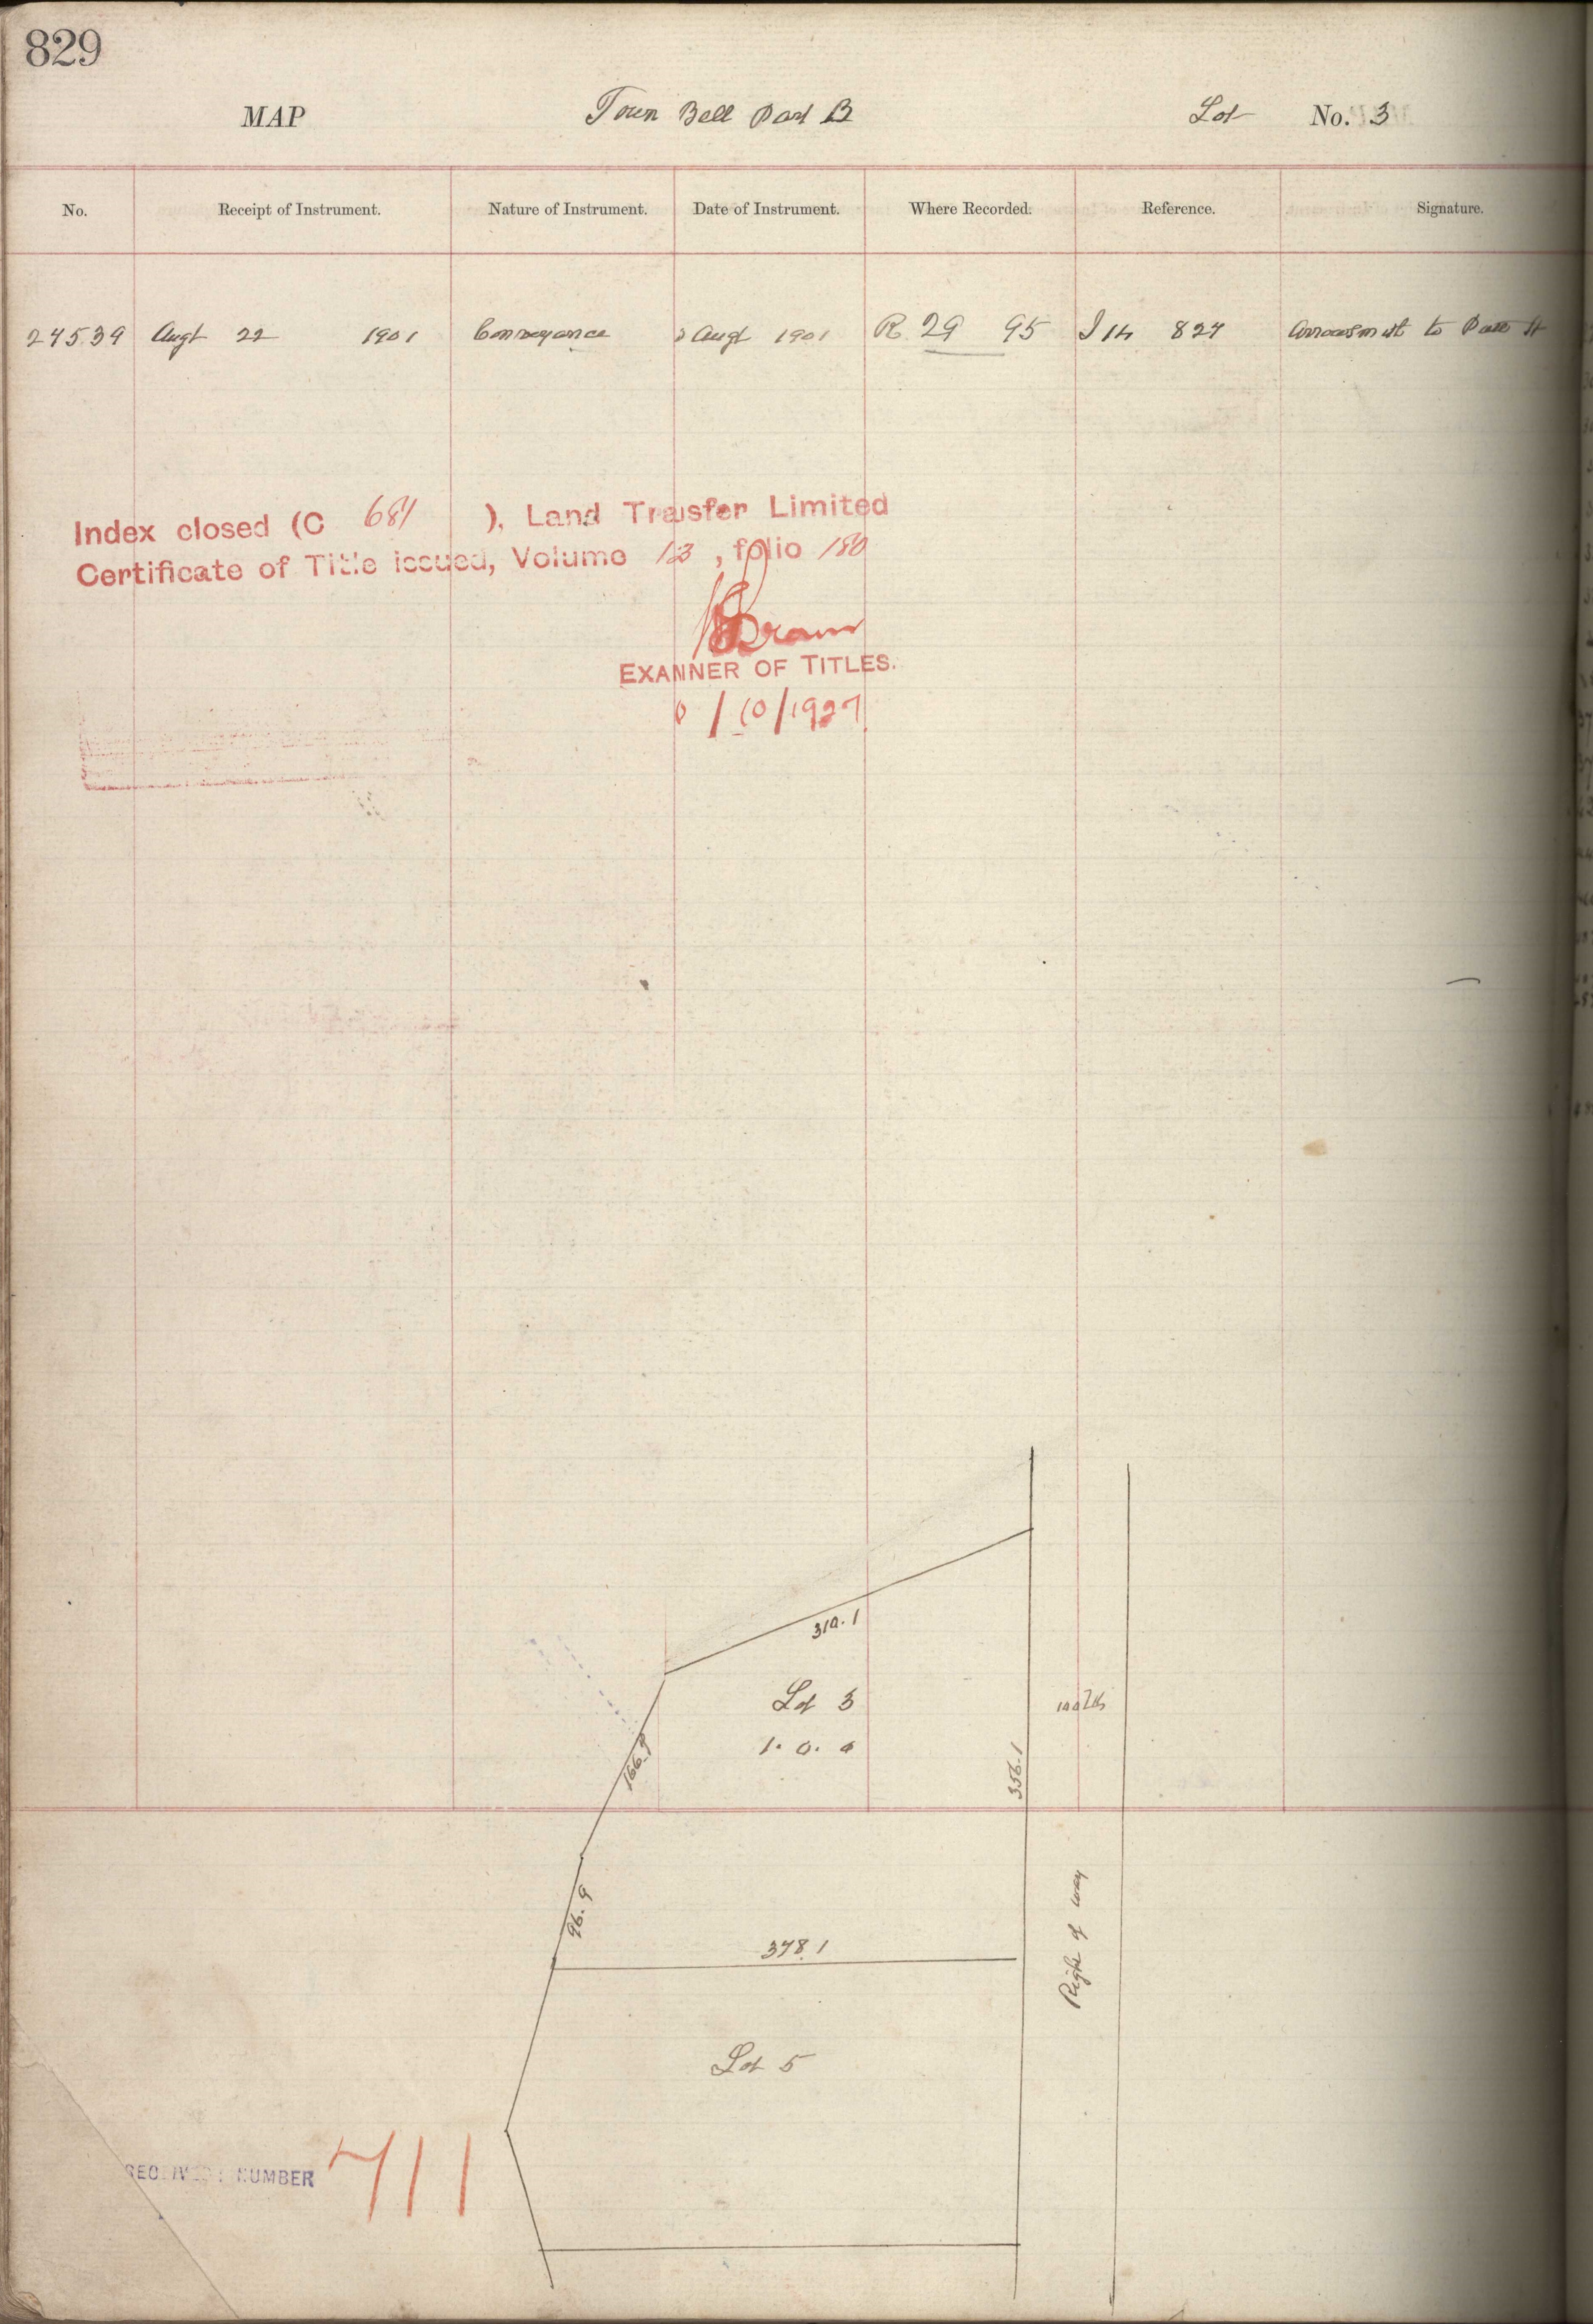 829
MAP Town Belt Part B Lot No. 3
No. Receipt of Instrument. Nature of Instrument. Date of Instrument. Where Recorded. Reference. Signature.
24539 Augt 22 1901 Conveyance 2 Augt 1901 R 29 95 I 14 827 Arrowsmith to
Index closed (C 681 ), Land Transfer Limited
Certificate of Title issued, Volume 123, folio 180
EXAMINER OF TITLES.
/10/1927
310.1
Lot 3
1. 0. 0
100 lks
166.9
356.1
96.9
378.1
Right of way
Lot 5
RECEIVING NUMBER 711